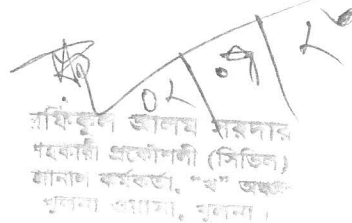 ০২
রফিকুল আলম সরদার
সহকারী প্রকৌশলী (সিভিল)
কর্মকর্তা, "খ" অঞ্চল
খুলনা ওয়াসা, খুলনা।